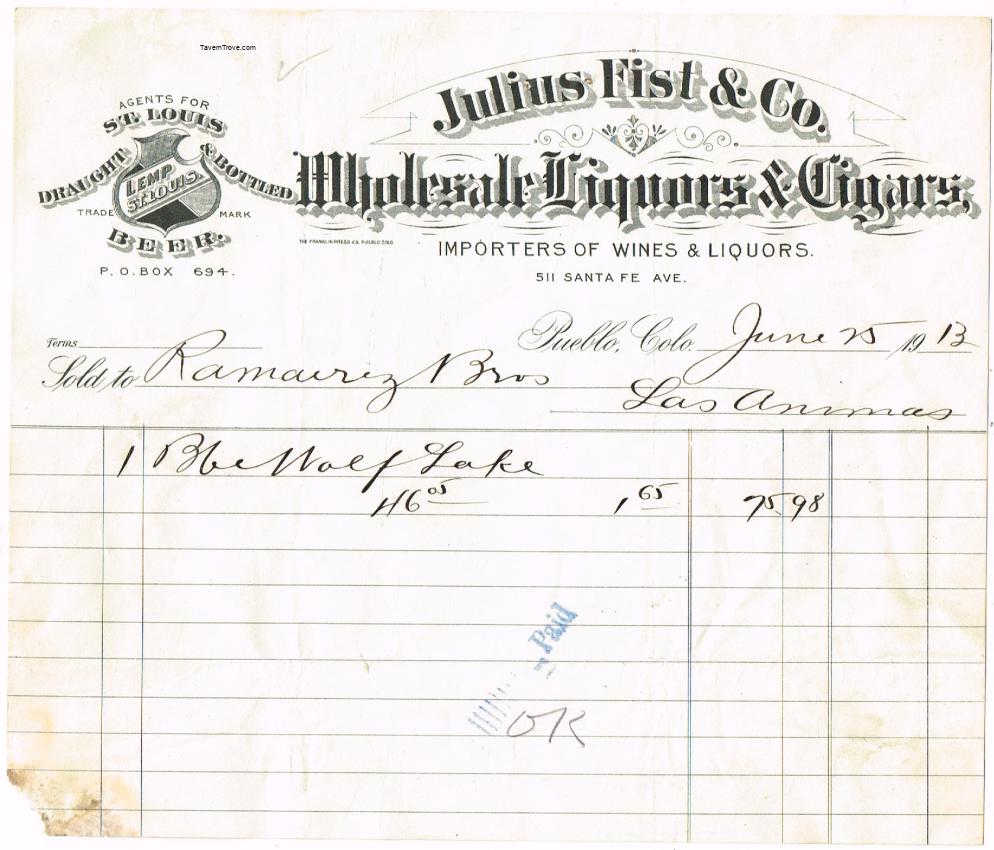 TavernTrove.com
AGENTS FOR
ST. LOUIS
DRAUGHT & BOTTLED
LEMP
ST. LOUIS.
TRADE MARK
BEER.
P.O. BOX 694.
Julius Fist & Co.
Wholesale Liquors & Cigars,
THE FRANKLIN PRESS CO. PUEBLO, COLO.
IMPORTERS OF WINES & LIQUORS.
511 SANTA FE AVE.
Pueblo, Colo. June 25 1913
Terms
Sold to Ramairez Bros
Las Animas
1 Bbe Wolf Lake
46 05 1 65 75 98
Paid
OK